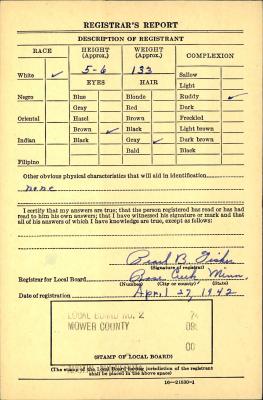 REGISTRAR'S REPORT
DESCRIPTION OF REGISTRANT
RACE HEIGHT (Approx.) WEIGHT (Approx.) COMPLEXION
White ✓ 5-6 133 Sallow
EYES HAIR Light
Negro Blue Blonde Ruddy ✓
Gray Red Dark
Oriental Hazel Brown Freckled
Brown ✓ Black Light brown
Indian Black Gray ✓ Dark brown
Bald Black
Filipino
Other obvious physical characteristics that will aid in identification
none
I certify that my answers are true; that the person registered has read or has had
read to him his own answers; that I have witnessed his signature or mark and that
all of his answers of which I have knowledge are true, except as follows:
Pearl B.
(Signature of registrar)
Registrar for Local Board Rose Creek Minn.
(Number) (City or county) (State)
Date of registration April 27, 1942
LOCAL BOARD NO. 2
MOWER COUNTY
(STAMP OF LOCAL BOARD)
(The stamp of the Local Board having jurisdiction of the registrant
shall be placed in the above space)
16—21630-1